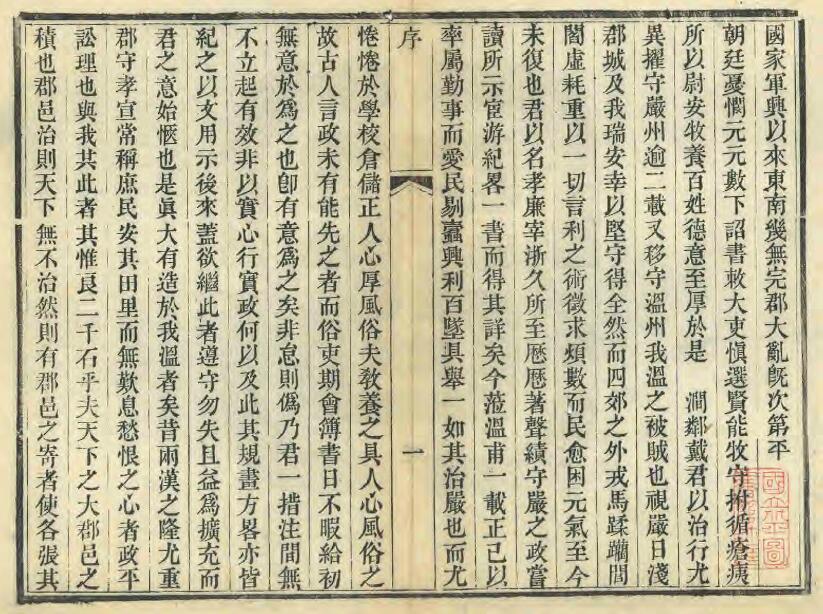 國家軍興以來東南幾無完郡大亂旣次第平
朝廷憂憫元元數下詔書敕大吏愼選賢能牧守拊循瘡痍
所以尉安牧養百姓德意至厚於是 澗鄰戴君以治行尤
異擢守嚴州逾二載又移守溫州我溫之被賊也視嚴日淺
郡城及我瑞安幸以堅守得全然而四郊之外戎馬蹂躪閭
閻虛耗重以一切言利之術徵求煩數而民愈困元氣至今
未復也君以名孝廉宰浙久所至厯厯著聲績守嚴之政嘗
讀所示宦游紀畧一書而得其詳矣今蒞溫甫一載正己以
率屬勤事而愛民剔蠹興利百墜具舉一如其治嚴也而尤
序 一
惓惓於學校倉儲正人心厚風俗夫敎養之具人心風俗之
故古人言政未有能先之者而俗吏期會簿書日不暇給初
無意於爲之也卽有意爲之矣非怠則僞乃君一措注間無
不立起有效非以實心行實政何以及此其規畫方畧亦皆
紀之以文用示後來蓋欲繼此者遵守勿失且益爲擴充而
君之意始愜也是眞大有造於我溫者矣昔兩漢之隆尤重
郡守孝宣常稱庶民安其田里而無歎息愁恨之心者政平
訟理也與我共此者其惟良二千石乎夫天下之大郡邑之
積也郡邑治則天下無不治然則有郡邑之寄者使各張其